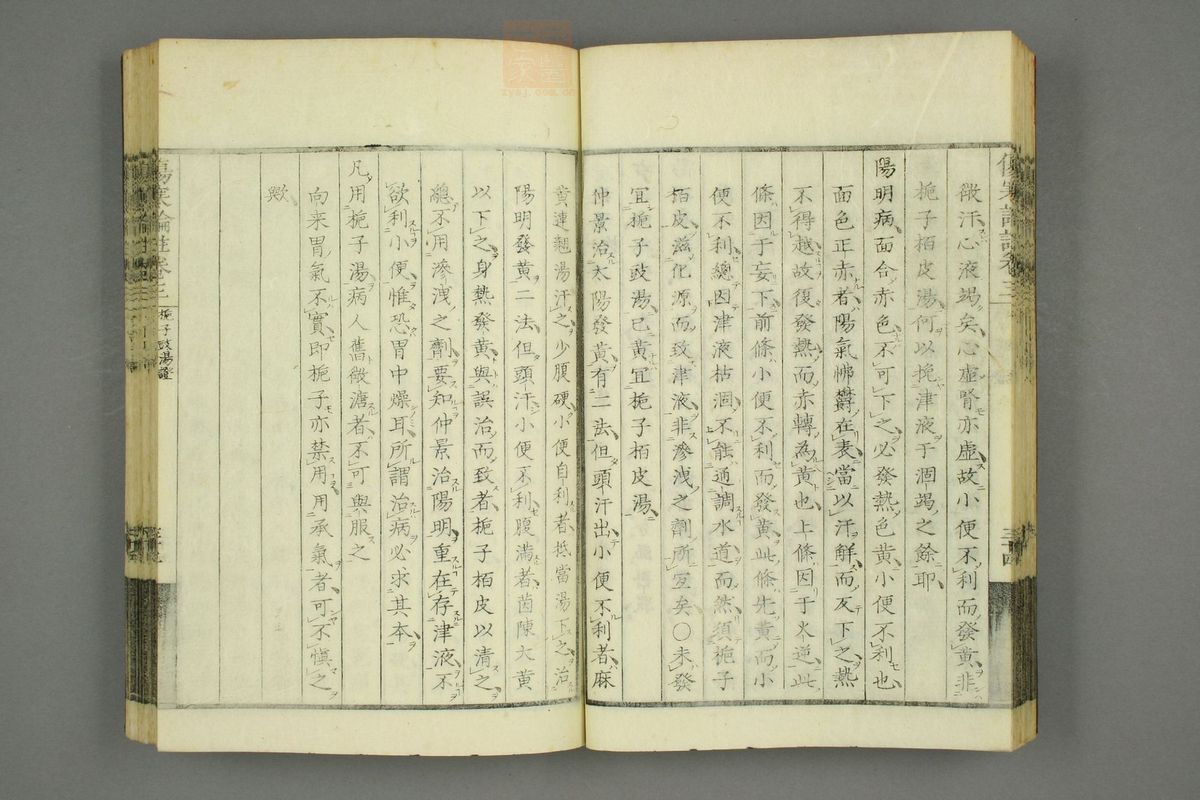 微汗心液竭矣心虛腎亦虛故小便不利而發黃非
梔子栢皮湯何以挽津液于涸竭之餘耶
陽明病面合赤色不可下之必發熱色黃小便不利也
面色正赤者陽氣怫欝在表當以汗觧而反下之熱
不得越故復發熱而赤轉為黃也上條因于火逆此
條因于妄下前條小便不利而發黃此條先黃而小
便不利總因津液枯涸不能通調水道而然須梔子
栢皮滋化源而致津液非滲洩之劑所冝矣〇未發
冝梔子豉湯已黃冝梔子栢皮湯
仲景治太陽發黃有二法但頭汗出小便不利者麻
黃連翹湯汗之少腹硬小便自利者抵當湯下之治
陽明發黃二法但頭汗小便不利腹滿者茵陳大黃
以下之身熱發黃與誤治而致者梔子栢皮以清之
總不用滲洩之劑要知仲景治陽明重在存津液不
欲利小便惟恐胃中燥耳所謂治病必求其本
凡用梔子湯病人舊微溏者不可與服之
向来胃氣不實即梔子亦禁用用承氣者可不慎之
歟
傷寒論註卷三
梔子豉湯證